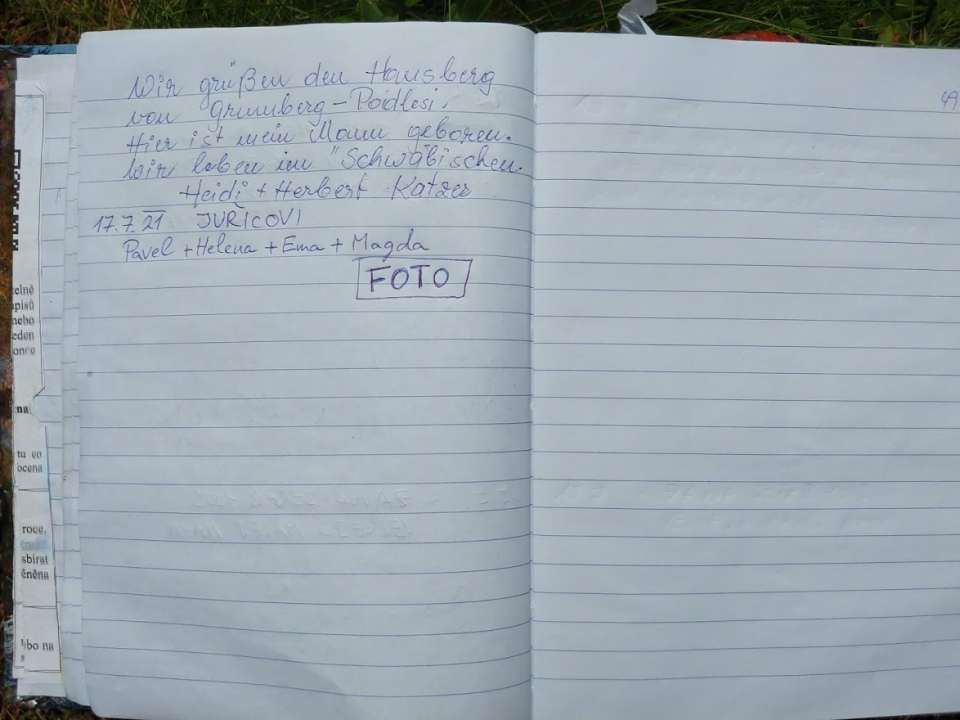 Wir grüßen den Hausberg
von Grünberg-Podlesi.
Hier ist mein Mann geboren.
Wir leben im "Schwäbischen.
Heidi + Herbert Katzer
17.7.21 JUŘICOVI
Pavel + Helena + Ema + Magda
FOTO
49
elně
apisů
nebo
eden
once
na
tu co
ocena
roce.
sbírat
ěněna
bo na